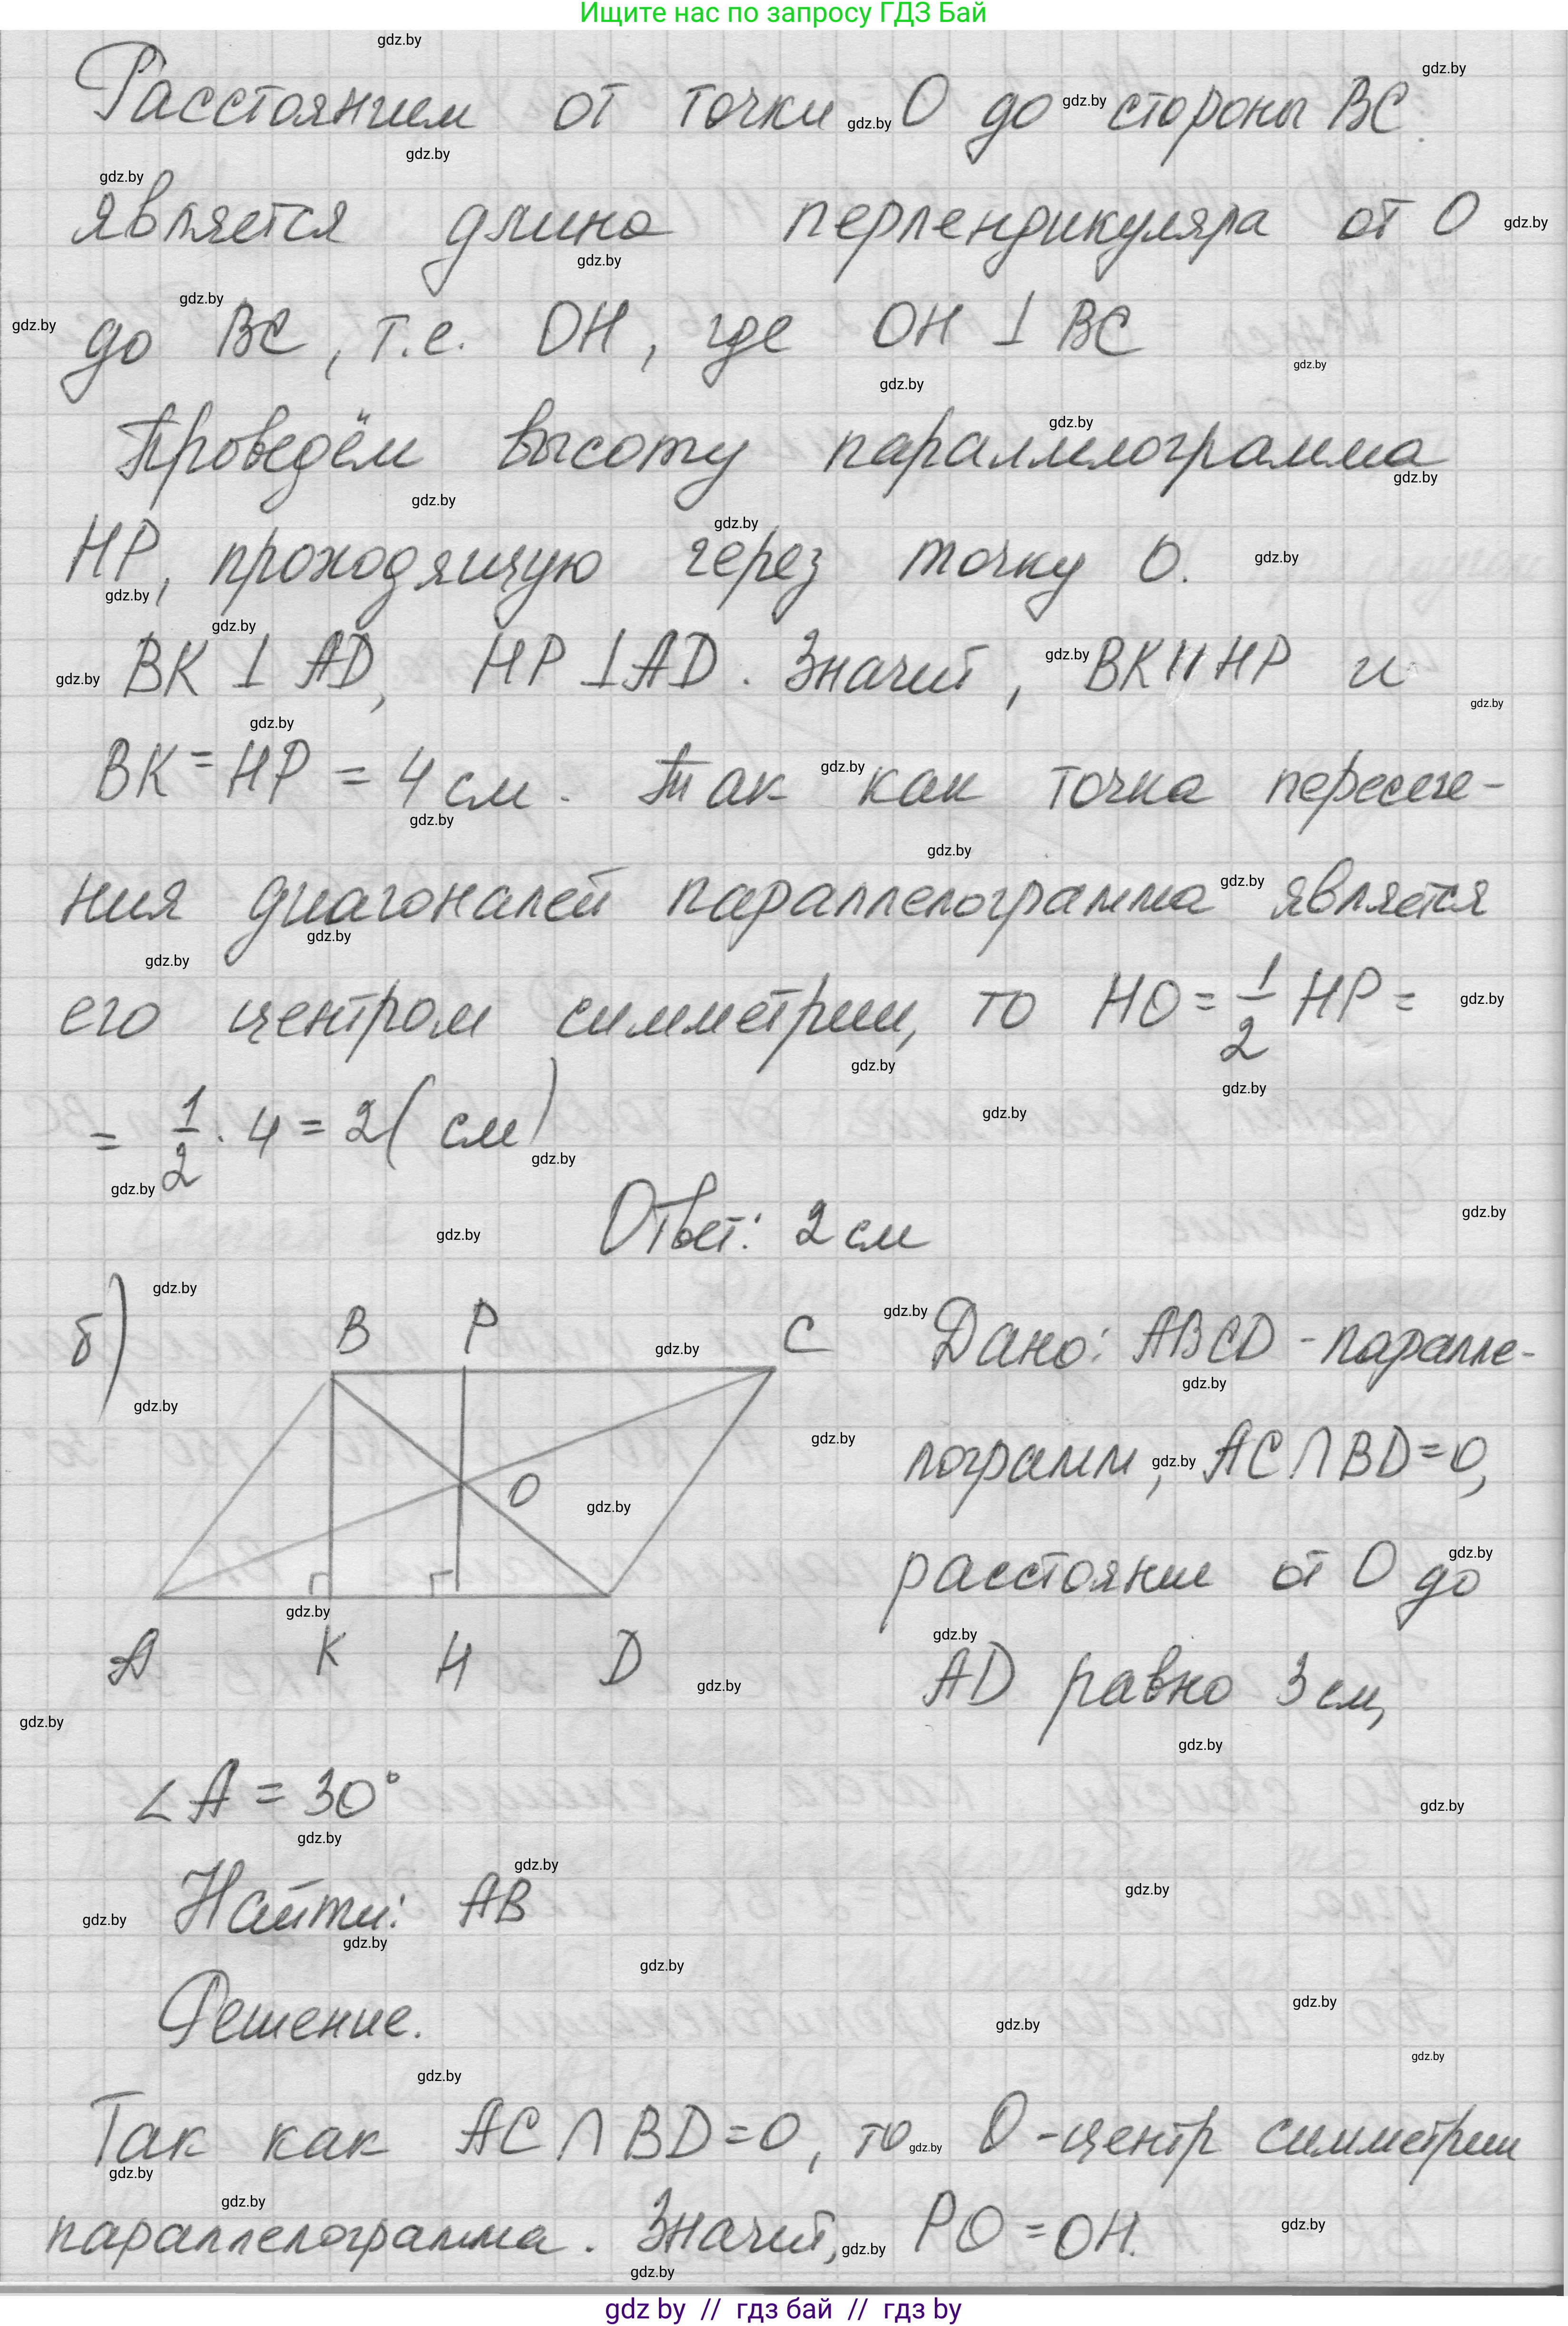 Ищите нас по запросу ГДЗ Бай
Расстоянием от точки O до стороны BC
является длина перпендикуляра от O
до BC, т.е. OH, где OH ⊥ BC
Проведём высоту параллелограмма
HP, проходящую через точку O.
BK ⊥ AD, HP ⊥ AD. Значит, BK || HP и
BK = HP = 4 см. Так как точка пересече-
ния диагоналей параллелограмма является
его центром симметрии, то HO = 1/2 HP =
= 1/2 · 4 = 2 (см)
Ответ: 2 см
б)
B P C
O
A K H D
Дано: ABCD - паралле-
лограмм, AC ∩ BD = O,
расстояние от O до
AD равно 3 см,
∠A = 30°
Найти: AB
Решение.
Так как AC ∩ BD = O, то O - центр симметрии
параллелограмма. Значит, PO = OH.
gdz by // гдз бай // гдз by